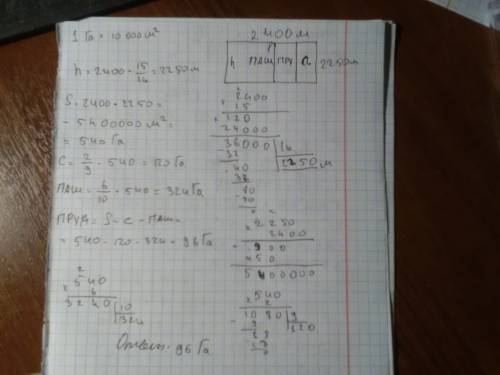 1 Га = 10 000 м²
h = 2400 · 15/16 = 2250 м
S = 2400 · 2250 =
= 5400000 м² =
= 540 Га
C = 2/9 · 540 = 120 Га
ПАШ = 6/10 · 540 = 324 Га
ПРУД = S - C - ПАШ =
= 540 - 120 - 324 = 96 Га
2
× 540
6
3240 | 10
324
Ответ: 96 Га
2400 м
h ПАШ ПРУ С 2250 м
2
2400
× 15
+ 120
24000
36000 | 16
- 32 2250 м
40
- 32
80
- 80
0
2250
× 2400
+ 900
450
5400000
× 540
2
1080 | 9
- 9 120
18
- 18
0